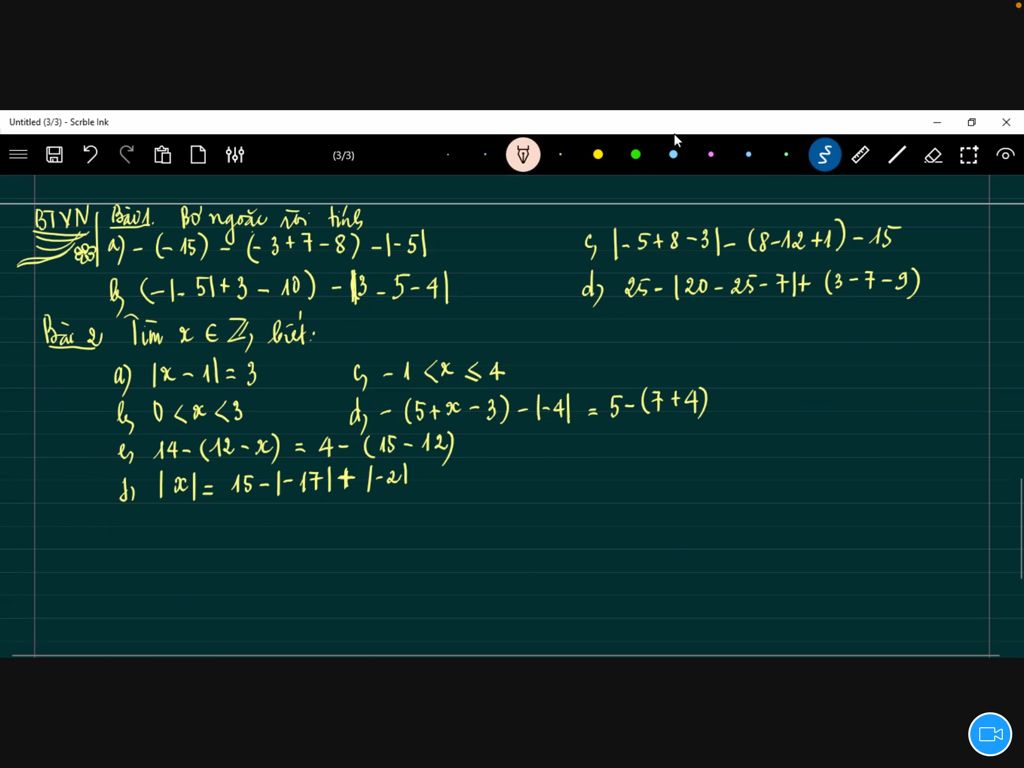 Untitled (3/3) - Scrble Ink
(3/3)
BTVN Bài 1. Bỏ ngoặc rồi tính
a) - (- 15) - (- 3 + 7 - 8) - |- 5|
c) |- 5 + 8 - 3| - (8 - 12 + 1) - 15
b) (- |- 5| + 3 - 10) - |3 - 5 - 4|
d) 25 - |20 - 25 - 7| + (3 - 7 - 9)
Bài 2 Tìm x ∈ ℤ, biết:
a) |x - 1| = 3
c) - 1 < x ≤ 4
b) 0 < x < 3
d) - (5 + x - 3) - |- 4| = 5 - (7 + 4)
e) 14 - (12 - x) = 4 - (15 - 12)
f) |x| = 15 - |- 17| + |- 2|